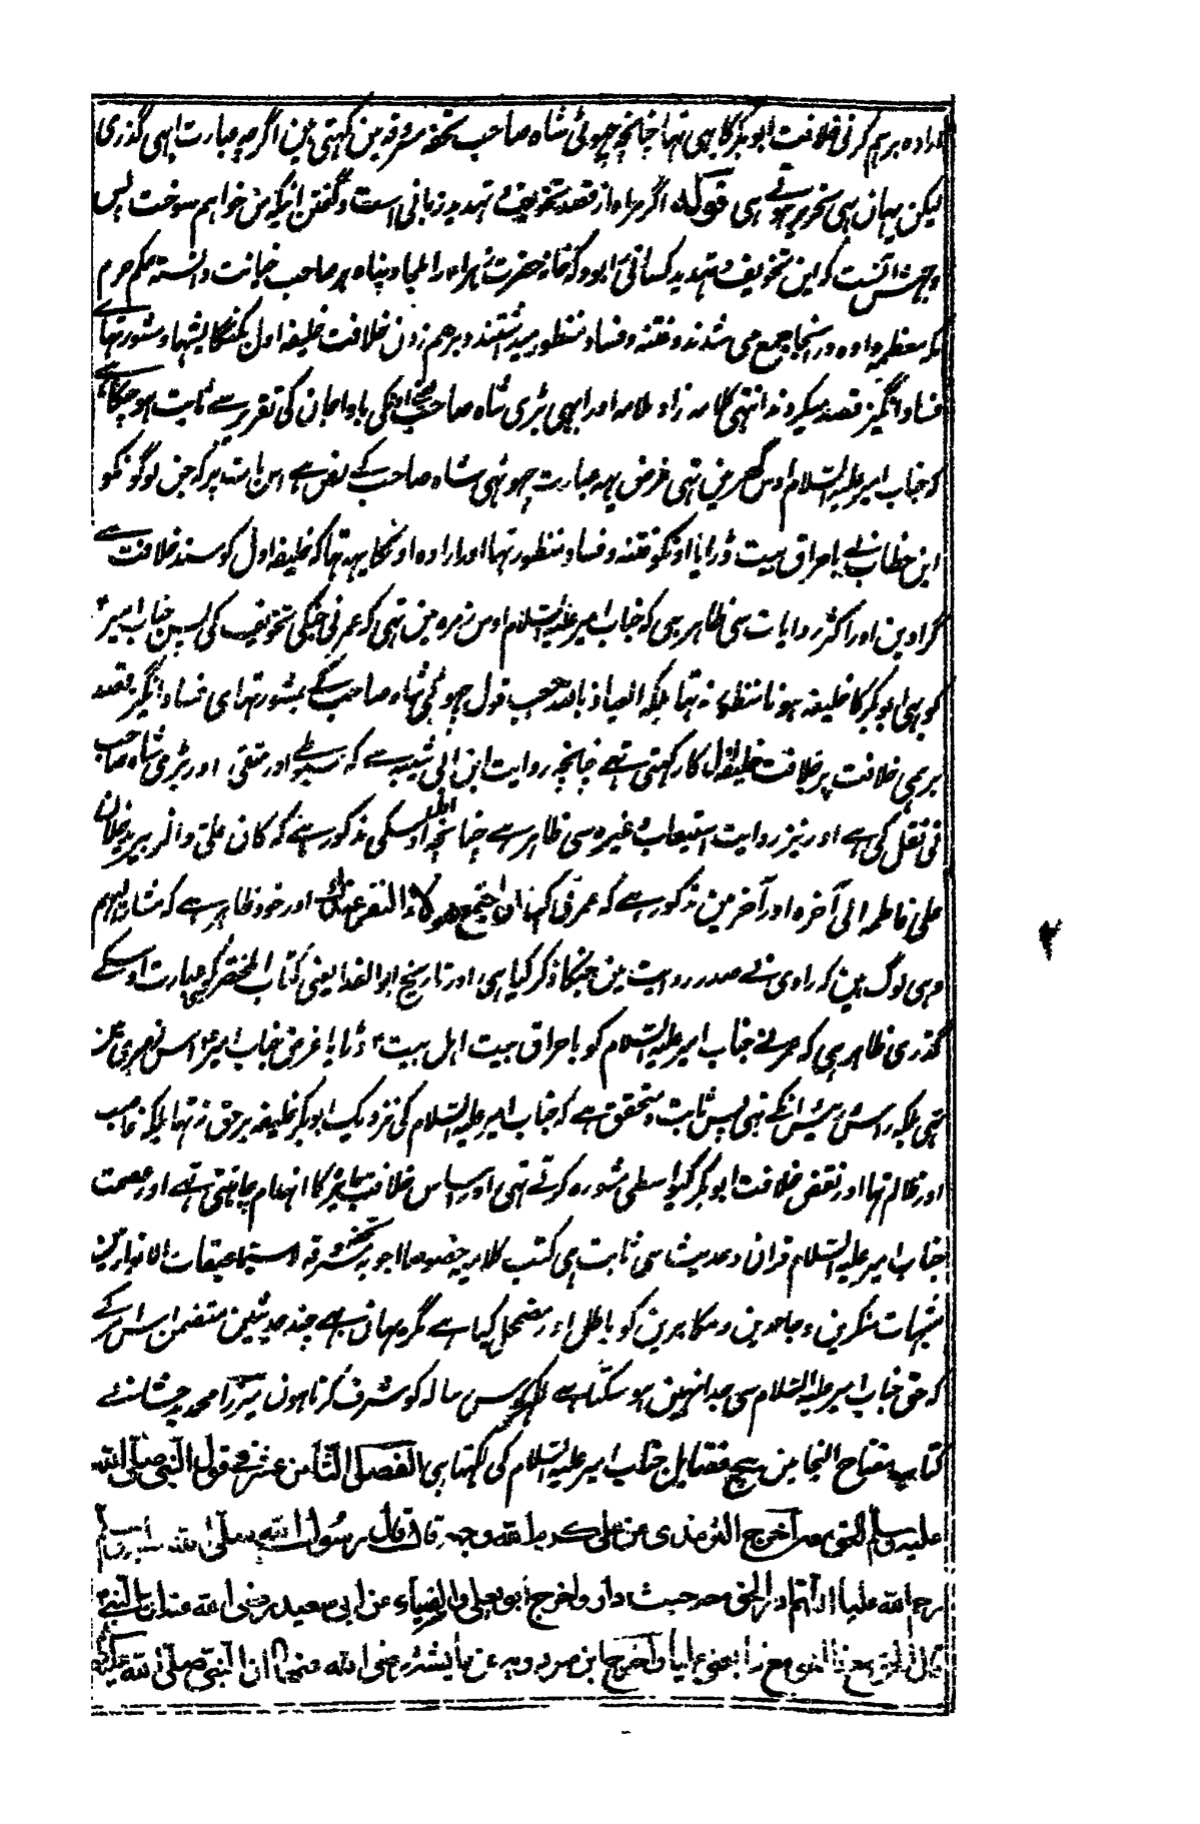 ارادہ برہم کرنی خلافت ابو بکر کا ہی تہا چنانچہ چہوٹی شاہ صاحب تحفہ مسروقہ مین کہتی ہین اگرچہ یہ عبارت ابہی گذری
لیکن یہان بہی تحریر ہوتے ہی قولہ اگر مراد از قصد تخویف و تہدید زبانی است و گفتن اینکہ من خواہم سوخت پس
وجہش آنست کہ این تخویف و تہدید کسانی را بود کہ خانہ حضرت زہرا را ملجا و پناہ ہر صاحب خیانت دانستہ حکم حرم
مکہ معظمہ دادہ در انجا جمع می شدند و فتنہ و فساد منظور میداشتند و برہم زدن خلافت خلیفہ اول بکنکایشہا و مشورتہائے
فساد انگیز قصد میکردند انتہی کلامہ زاد ملامہ اور ابہی بڑی شاہ صاحب یعنی اونکی باواجان کی تقریر سے ثابت ہو چکا ہے
کہ جناب امیر علیہ السلام اوس گھر مین تہی غرض یہہ عبارت چہوٹی شاہ صاحب کے نص ہے اس بات پر کہ جن لوگونکو
ابن خطاب نے باحراق بیت ڈرایا اونکو فتنہ و فساد منظور تہا اور ارادہ اونکا یہہ تہا کہ خلیفہ اول کو مسند خلافت سے
گرادین اور اکثر روایات سی ظاہر ہی کہ جناب امیر علیہ السلام اوس زمرہ مین تہی کہ عمر نی جنکی تخویف کی پس جناب امیر
کو بہی ابوبکر کا خلیفہ ہونا منظور نہ تہا بلکہ العیاذ باللہ حسب قول چہوٹی شاہ صاحب کے بمشورتہای فساد انگیز قصد
برہمی خلافت پر خلافت خلیفہ اول کا رکہتی تہے چنانچہ روایت ابن ابی شیبہ سے کہ سیوطی اور متقی اور بڑی شاہ صاحب
نی نقل کی ہے اور نیز روایت استیعاب وغیرہ سی ظاہر ہے چنانچہ اول اسکی مذکور ہے کہ کان علی والزبیر یدخلان
علی فاطمہ الی آخرہ اور آخر مین مذکور ہے کہ عمر نی کہا ان اجتمع ھولاء النفر عندک اور خود ظاہر ہے کہ مشار الیہم
وہی لوگ ہین کہ راوی نے صدر روایت مین جنکا ذکر کیا ہی اور تاریخ ابو الفدا یعنی کتاب المختصر کہ عبارت اوسکے
گذری ظاہر ہی کہ عمر نے جناب امیر علیہ السلام کو باحراق بیت اہل بیت ڈرایا غرض جناب امیر اس زمرہ سی خارج نہ
تہی بلکہ راس رئیس انکے تہی پس ثابت و متحقق ہے کہ جناب امیر علیہ السلام کی نزدیک ابو بکر خلیفہ برحق نہ تہا بلکہ غاصب
اور ظالم تہا اور نقض خلافت ابو بکر کیواسطی مشورہ کرتے تہی اور اساس خلافت کا انہدام چاہتی تہے اور عصمت
جناب امیر علیہ السلام قران و حدیث سی ثابت ہی کتب کلامیہ خصوصا اجوبہ تحفہ مسروقہ لا سیما عبقات الانوار مین
شبہات منکرین و جاحدین و مکابرین کو باطل اور مضمحل کیا ہے مگر یہان بہی چند حدیثین متضمن اس امر کے
کہ حق جناب امیر علیہ السلام سی جدا نہین ہو سکتا ہے لکہکر اس رسالہ کو مشرف کرتا ہون میرزا محمد بدخشانی نے
کتاب مفتاح النجا مین بیچ فضایل جناب امیر علیہ السلام کی لکہتا ہی الفصل الثامن عشر فی قول النبی صلی الله
علیہ وسلم الحق معہ اخرج الترمذی عن علی کرم اللہ وجہہ قال قال رسول اللہ صلی اللہ علیہ وسلم
رحم اللہ علیا اللہم ادر الحق معہ حیث دار واخرج ابو یعلی والضیاء عن ابی سعید رضی اللہ عنہ ان النبی
قال الحق مع ذا الحق مع ذا یعنی علیا واخرج ابن مردویہ عن عایشہ رضی اللہ عنہا ان النبی صلی اللہ علیہ
۲